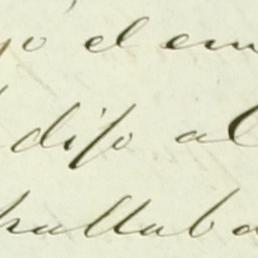 yo el em
dijo al
hallaba